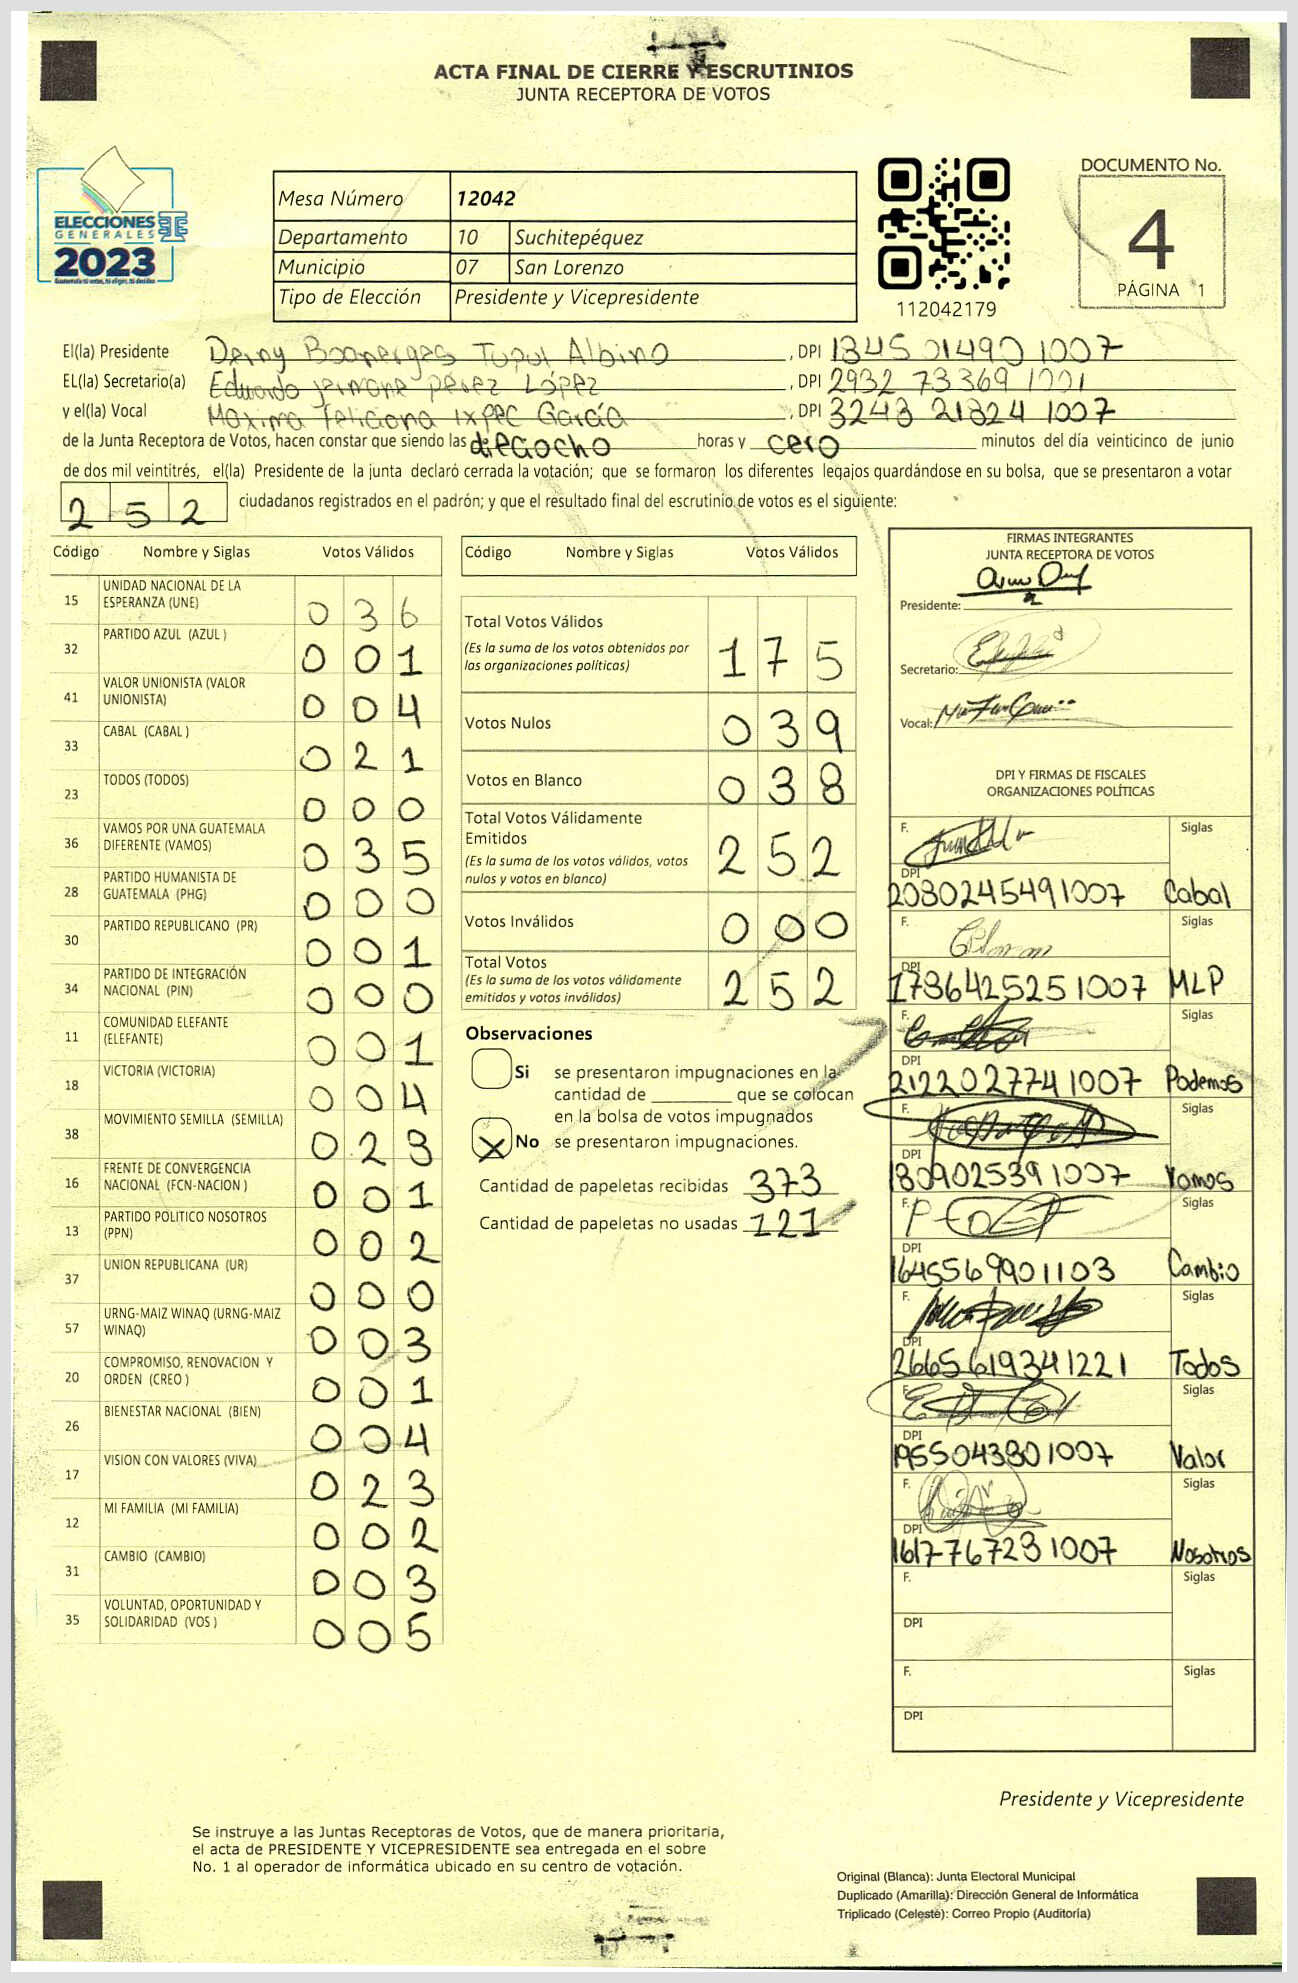 ACTA FINAL DE CIERRE Y ESCRUTINIOS
JUNTA RECEPTORA DE VOTOS
ELECCIONES
GENERALES
2023
Mesa Número 12042
Departamento 10 Suchitepéquez
Municipio 07 San Lorenzo
Tipo de Elección Presidente y Vicepresidente
112042179
DOCUMENTO No.
4
PÁGINA 1
El(la) Presidente Deiny Boanerges Tupul Albino, DPI 1345 01490 1007
EL(la) Secretario(a) Eduardo Pérez López, DPI 2932 73369 1001
y el(la) Vocal Maxima Feliciana Ixpec García, DPI 3243 21824 1007
de la Junta Receptora de Votos, hacen constar que siendo las dieciocho horas y cero minutos del día veinticinco de junio
de dos mil veintitrés, el(la) Presidente de la junta declaró cerrada la votación; que se formaron los diferentes legajos guardándose en su bolsa, que se presentaron a votar
252 ciudadanos registrados en el padrón; y que el resultado final del escrutinio de votos es el siguiente:
Código Nombre y Siglas Votos Válidos
15 UNIDAD NACIONAL DE LA ESPERANZA (UNE) 036
32 PARTIDO AZUL (AZUL ) 001
41 VALOR UNIONISTA (VALOR UNIONISTA) 004
33 CABAL (CABAL ) 021
23 TODOS (TODOS) 000
36 VAMOS POR UNA GUATEMALA DIFERENTE (VAMOS) 035
28 PARTIDO HUMANISTA DE GUATEMALA (PHG) 000
30 PARTIDO REPUBLICANO (PR) 001
34 PARTIDO DE INTEGRACIÓN NACIONAL (PIN) 000
11 COMUNIDAD ELEFANTE (ELEFANTE) 001
18 VICTORIA (VICTORIA) 004
38 MOVIMIENTO SEMILLA (SEMILLA) 023
16 FRENTE DE CONVERGENCIA NACIONAL (FCN-NACION ) 001
13 PARTIDO POLITICO NOSOTROS (PPN) 002
37 UNION REPUBLICANA (UR) 000
57 URNG-MAIZ WINAQ (URNG-MAIZ WINAQ) 003
20 COMPROMISO, RENOVACION Y ORDEN (CREO ) 001
26 BIENESTAR NACIONAL (BIEN) 004
17 VISION CON VALORES (VIVA) 023
12 MI FAMILIA (MI FAMILIA) 002
31 CAMBIO (CAMBIO) 003
35 VOLUNTAD, OPORTUNIDAD Y SOLIDARIDAD (VOS ) 005
Código Nombre y Siglas Votos Válidos
Total Votos Válidos 175
(Es la suma de los votos obtenidos por
las organizaciones políticas)
Votos Nulos 039
Votos en Blanco 038
Total Votos Válidamente
Emitidos 252
(Es la suma de los votos válidos, votos
nulos y votos en blanco)
Votos Inválidos 000
Total Votos 252
(Es la suma de los votos válidamente
emitidos y votos inválidos)
Observaciones
Si se presentaron impugnaciones en la
cantidad de ________ que se colocan
en la bolsa de votos impugnados
X No se presentaron impugnaciones.
Cantidad de papeletas recibidas 373
Cantidad de papeletas no usadas 121
FIRMAS INTEGRANTES
JUNTA RECEPTORA DE VOTOS
Presidente:
Secretario:
Vocal:
DPI Y FIRMAS DE FISCALES
ORGANIZACIONES POLÍTICAS
F. Siglas
DPI
2080245491007 Cabal
F. Siglas
DPI
1736425251007 MLP
F. Siglas
DPI
2122027741007 Podemos
F. Siglas
DPI
1809025391007 Vamos
F. Siglas
DPI
1645569901103 Cambio
F. Siglas
DPI
2665619341221 Todos
F. Siglas
DPI
1955043801007 Valor
F. Siglas
DPI
1617767231007 Nosotros
F. Siglas
DPI
F. Siglas
DPI
Presidente y Vicepresidente
Se instruye a las Juntas Receptoras de Votos, que de manera prioritaria,
el acta de PRESIDENTE Y VICEPRESIDENTE sea entregada en el sobre
No. 1 al operador de informática ubicado en su centro de votación.
Original (Blanca): Junta Electoral Municipal
Duplicado (Amarilla): Dirección General de Informática
Triplicado (Celeste): Correo Propio (Auditoría)